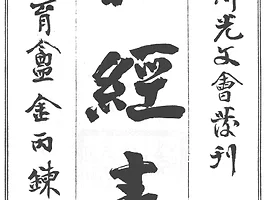 光文會發刊
經
育盦金丙鍊